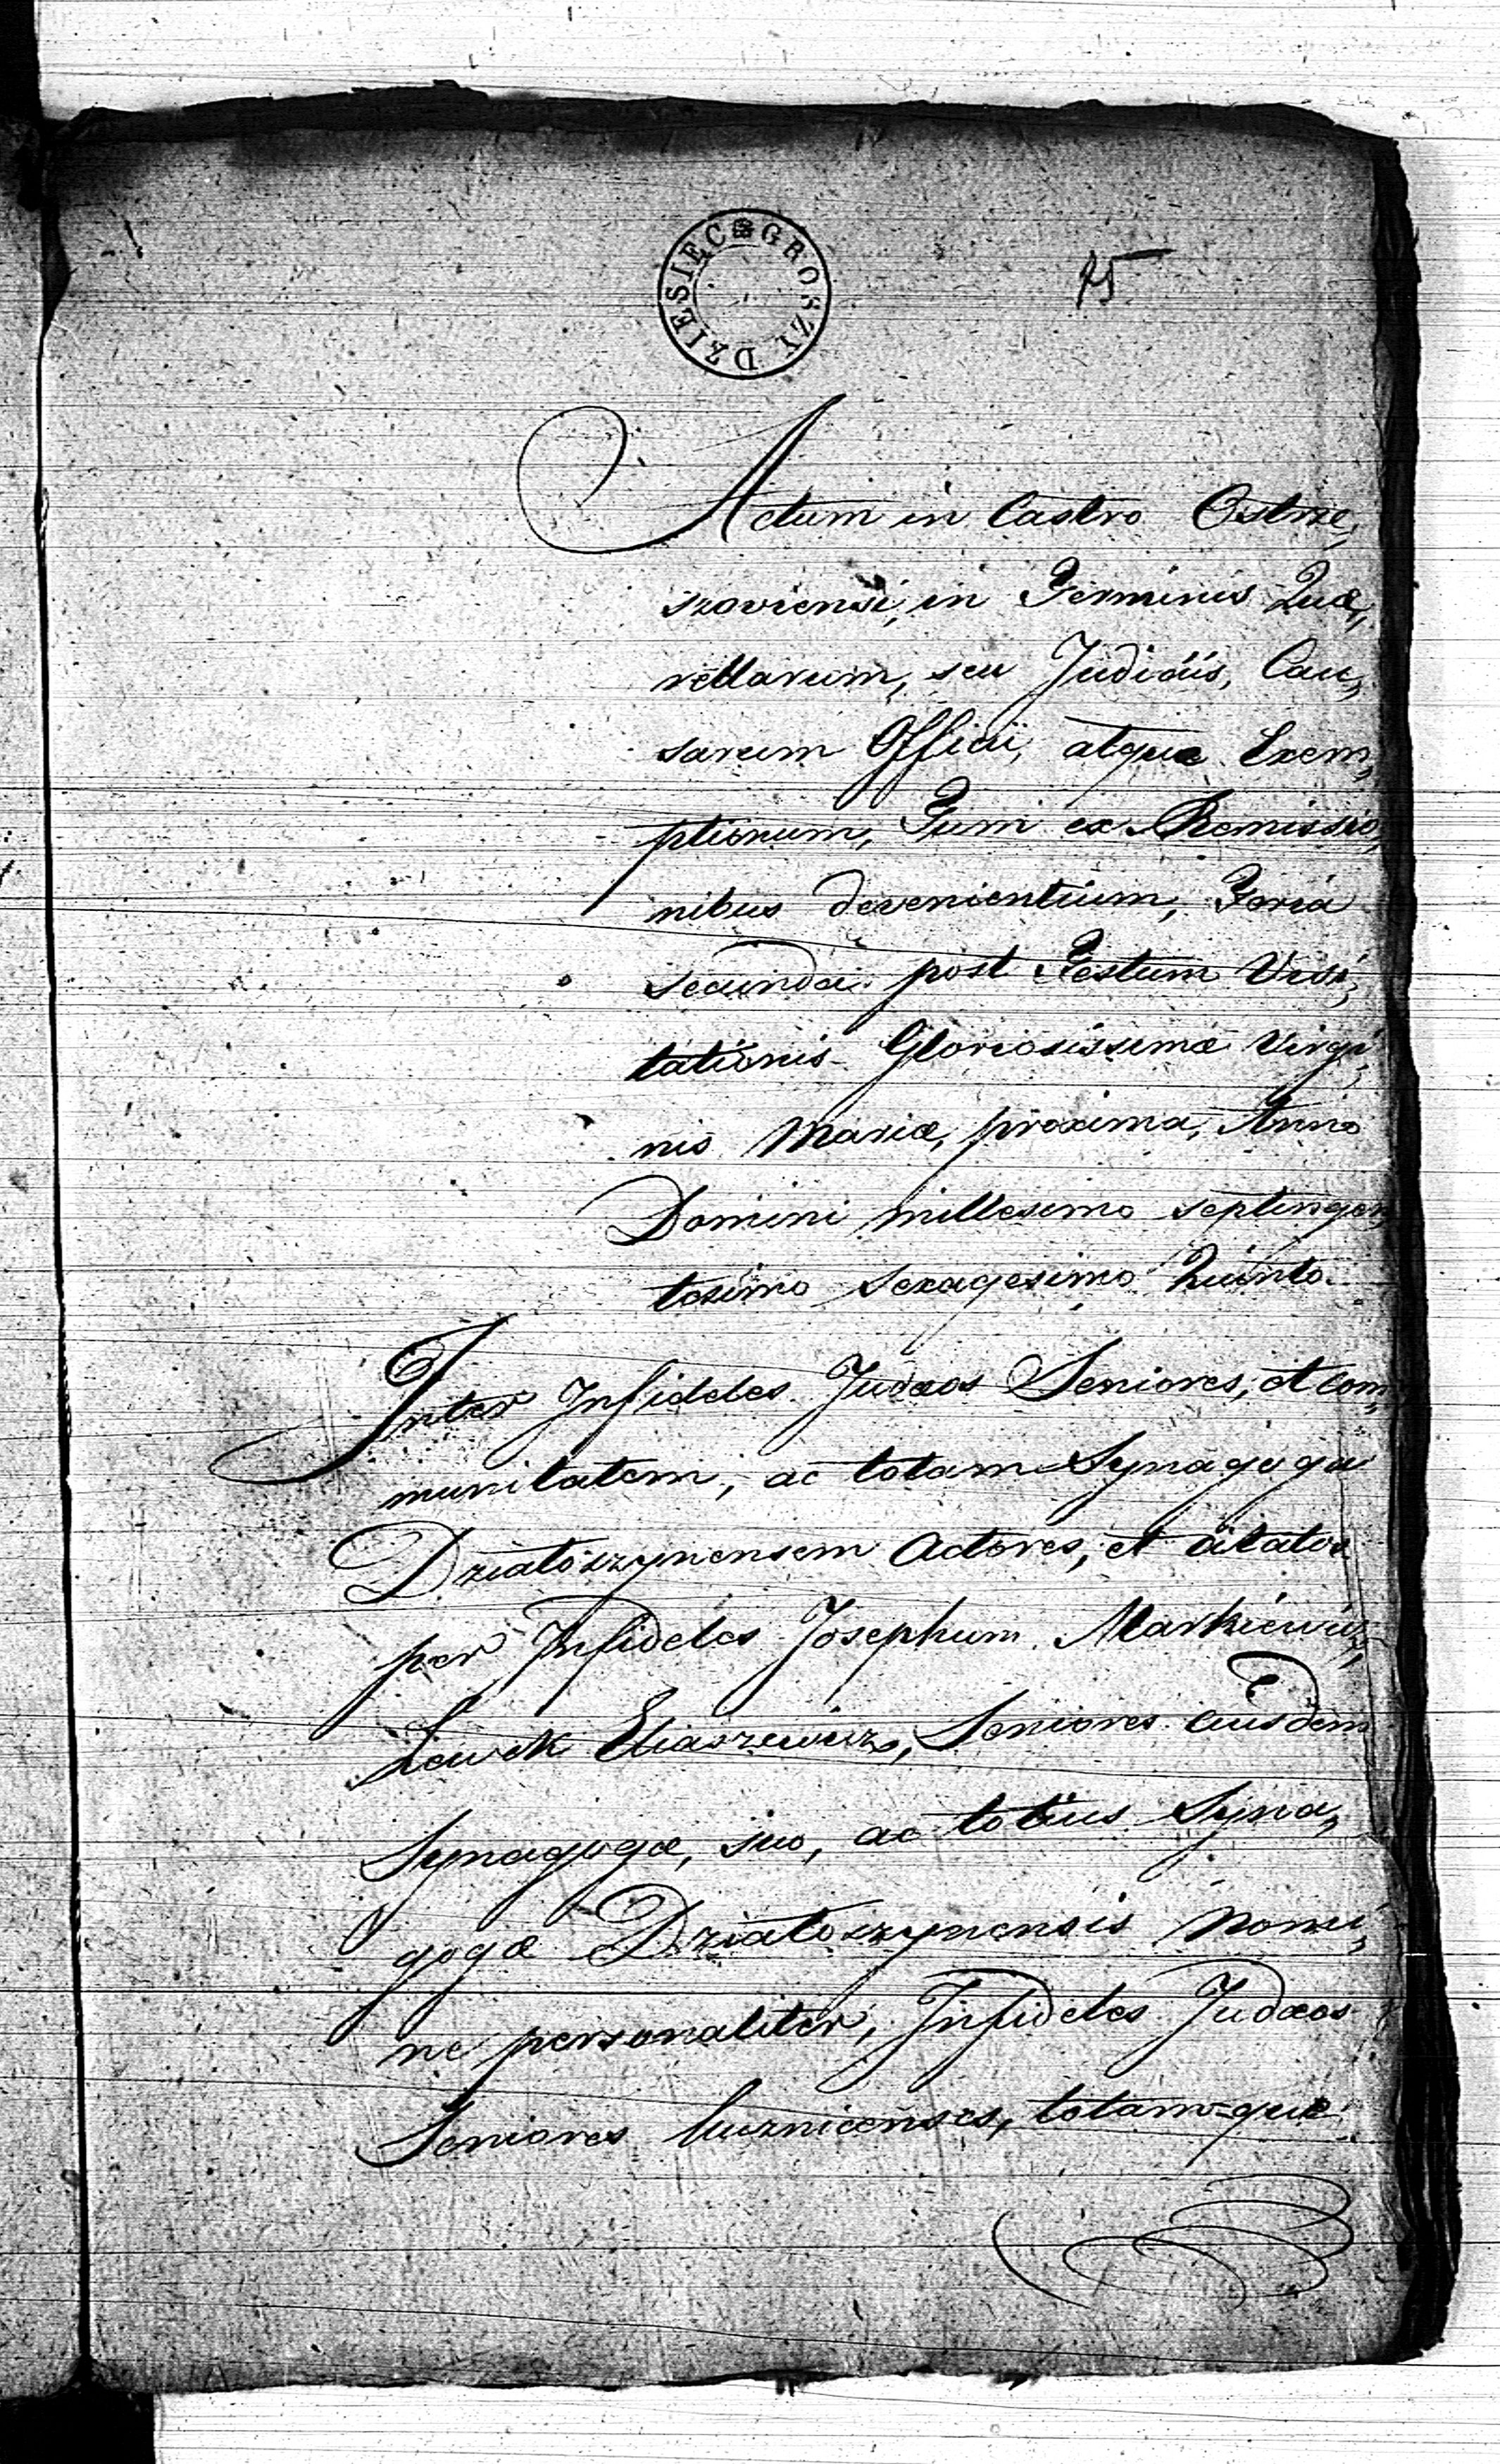 DZIESIĘC GROSZY
75
Actum in Castro Ostrze,
szoviensi, in Terminis Quæ,
rellarum, seu Judiciis, Cau,
sarum Officii, atque Exem,
ptionum, Tum ex Remissio,
nibus devenientium, Feria
secunda post Festum Visi,
tationis Gloriosissimæ Virgi,
nis Mariæ, proxima, Anno
Domini millesimo septingen
tesimo sexagesimo Quinto.
Inter Infideles Judæos Seniores, et com,
munitatem, ac totam Synagoga
Działoszynensem Actores, et citatos
per Infideles Josephum Markiewicz,
Lewek Eliaszewicz, Seniores eiusdem
Synagogæ, suo, ac totius Syna,
gogæ Działoszynensis nomi,
ne personaliter, Infideles Judæos
Seniores Kuznicenses, totamque